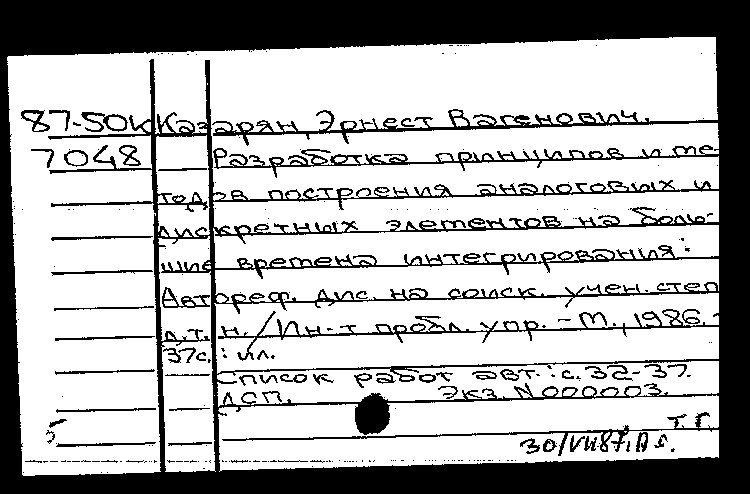 87-50к Казарян, Эрнест Вагенович.
7048 Разработка принципов и ме-
тодов построения аналоговых и
дискретных элементов на боль-
шие времена интегрирования:
Автореф. дис. на соиск. учен. степ
д.т.н. / Ин-т пробл. упр. - М., 1986. -
37с.: ил.
Список работ авт.: с. 32-37.
ДСП. Экз. N 000003.
Т. Г.
5
30/VII 87,